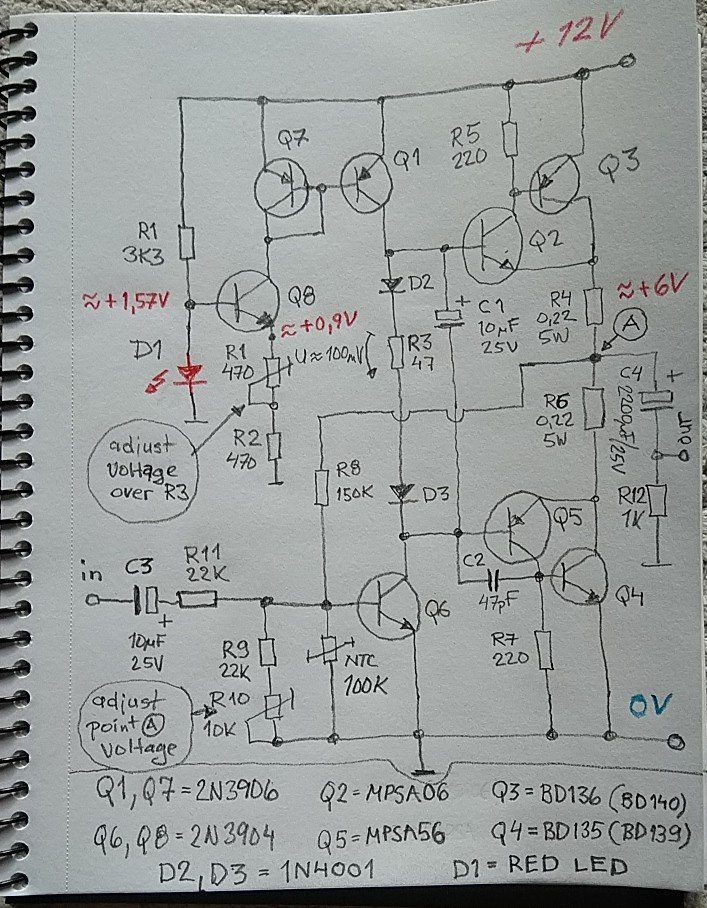 + 12V
Q7
Q1
R5
220
Q3
Q2
R1
3K3
≈+1,57V
Q8
≈+0,9V
D2
C1
10µF
25V
R4
0,22
5W
≈+6V
A
D1
R1
470
U≈100mV
R3
47
R6
0,22
5W
C4
2200µF/25V
OUT
R2
470
adjust
voltage
over R3
R8
150K
D3
R12
1K
Q5
C2
47pF
Q4
in
C3
10µF
25V
R11
22K
Q6
R9
22K
NTC
100K
R7
220
R10
10K
adjust
point A
voltage
0V
Q1, Q7 = 2N3906 Q2 = MPSA06 Q3 = BD136 (BD140)
Q6, Q8 = 2N3904 Q5 = MPSA56 Q4 = BD135 (BD139)
D2, D3 = 1N4001 D1 = RED LED